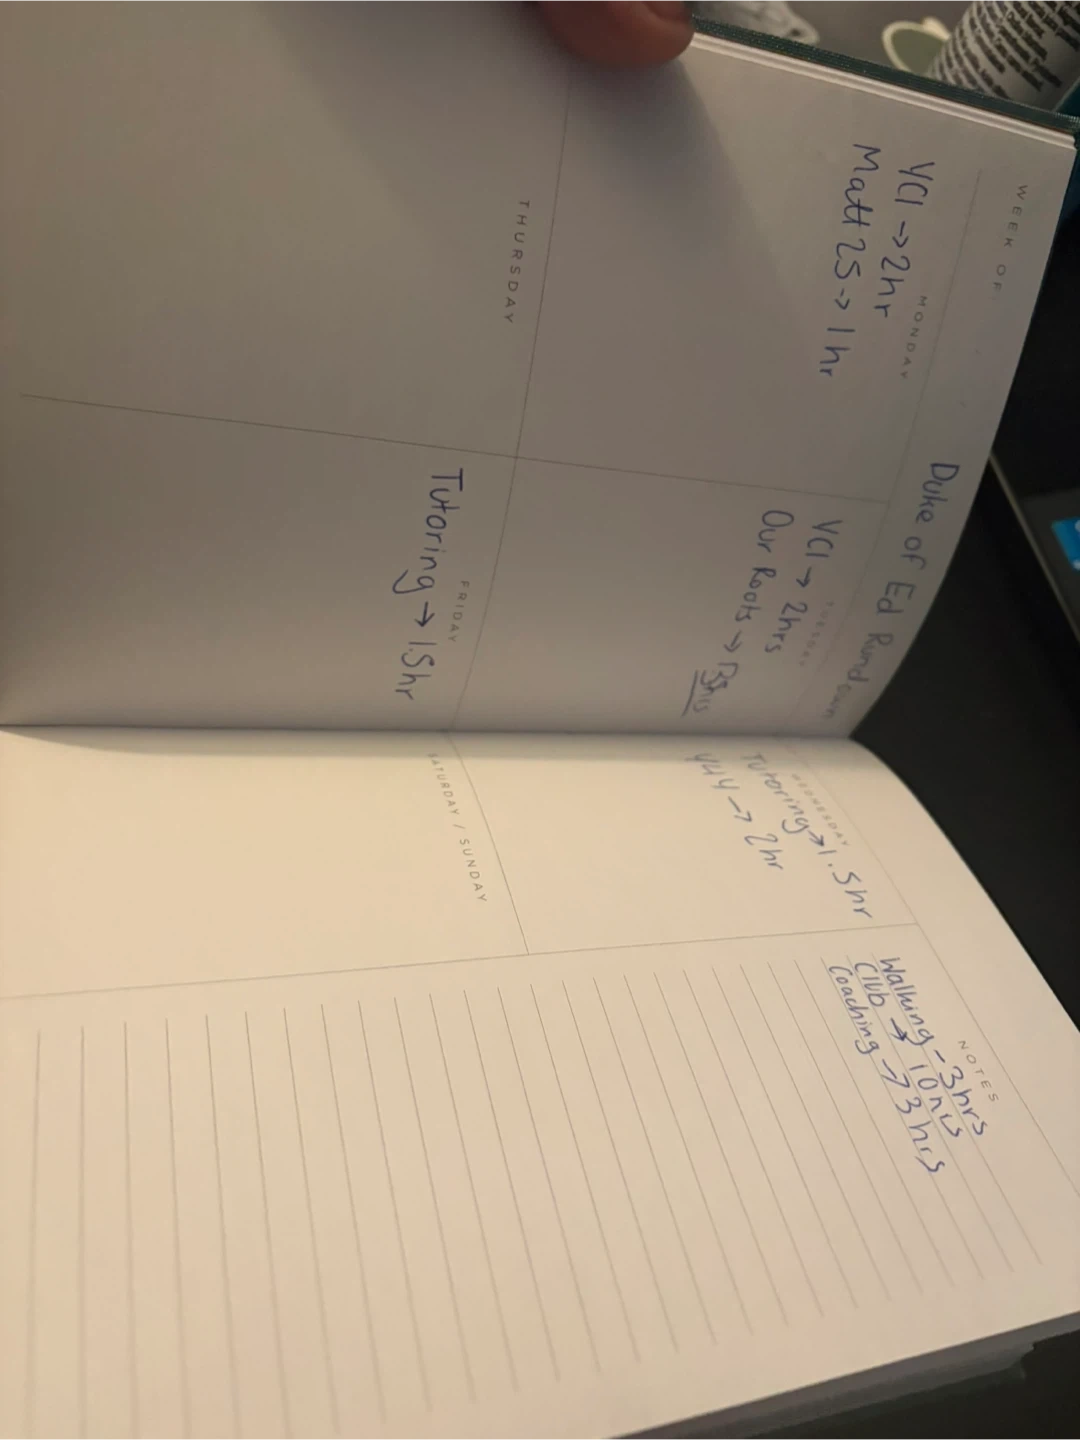 WEEK OF:
Duke of Ed Rundown
MONDAY
YCI → 2hr
Matt 25 → 1hr
TUESDAY
YCI → 2hrs
Our Roots →
WEDNESDAY
Tutoring → 1.5hr
→ 2hr
NOTES
Walking - 3hrs
Club → 10hrs
Coaching → 3hrs
THURSDAY
FRIDAY
Tutoring → 1.5hr
SATURDAY / SUNDAY